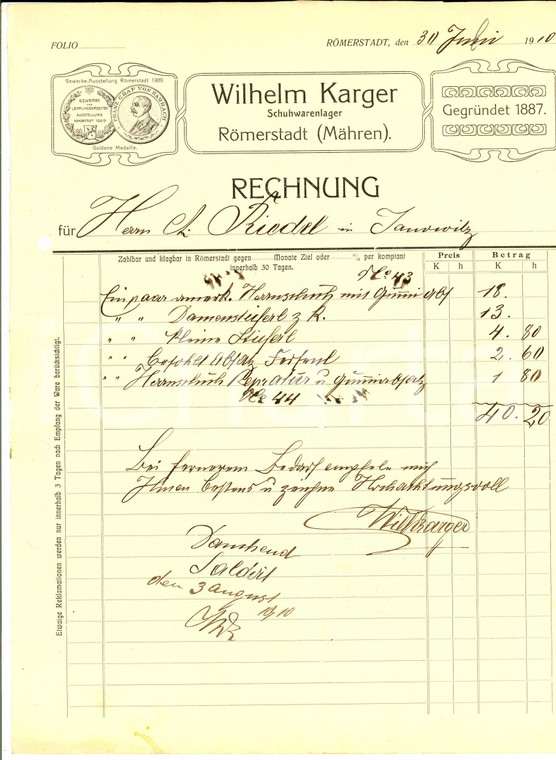 FOLIO
RÖMERSTADT, den 30 Juli 1910
Gewerbe-Ausstellung Römerstadt 1909.
GEWERBE
UND
AUSSTELLUNG
Goldene Medaille.
Wilhelm Karger
Schuhwarenlager
Römerstadt (Mähren).
Gegründet 1887.
RECHNUNG
für Herrn A. Riedel in Janowitz
Zahlbar und klagbar in Römerstadt gegen Monate Ziel oder % per komptant
innerhalb 30 Tagen.
Preis Betrag
K h K h
No 43
Ein paar amerk. Herrnschuh mit Gummi abs 18.
" " Damenstieferl z K. 13.
" " kleine Stieferl 4. 80
" " Gesohlt Absatz 2. 60
" " Herrnschuh Repratur u Gummiabsatz 1 80
No 44
40. 20
Bei fernerem Bedarf empfele mich
Ihnen bestens u zeichne Hochachtungsvoll
Wilh Karger
Dankend
Saldirt
den 3 august
1910
WK
Etwaige Reklamationen werden nur innerhalb 3 Tagen nach Empfang der Ware berücksichtigt.